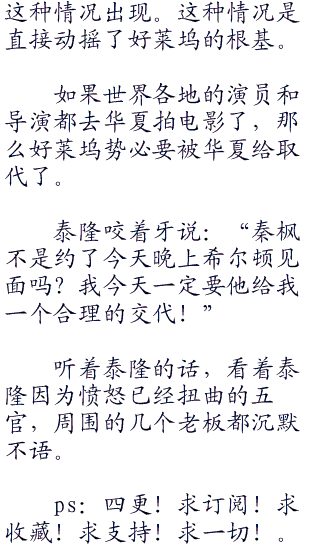 这种情况出现。这种情况是
直接动摇了好莱坞的根基。
如果世界各地的演员和
导演都去华夏拍电影了，那
么好莱坞势必要被华夏给取
代了。
泰隆咬着牙说：“秦枫
不是约了今天晚上希尔顿见
面吗？我今天一定要他给我
一个合理的交代！”
听着泰隆的话，看着泰
隆因为愤怒已经扭曲的五
官，周围的几个老板都沉默
不语。
ps：四更！求订阅！求
收藏！求支持！求一切！。